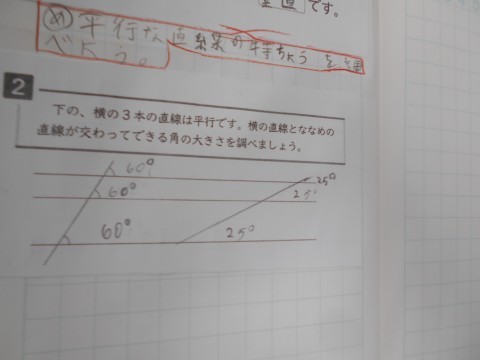 垂直です。
め 平行な直線の特ちょうを調
べよう。
2
下の、横の3本の直線は平行です。横の直線とななめの
直線が交わってできる角の大きさを調べましょう。
60°
25°
60°
25°
60°
25°